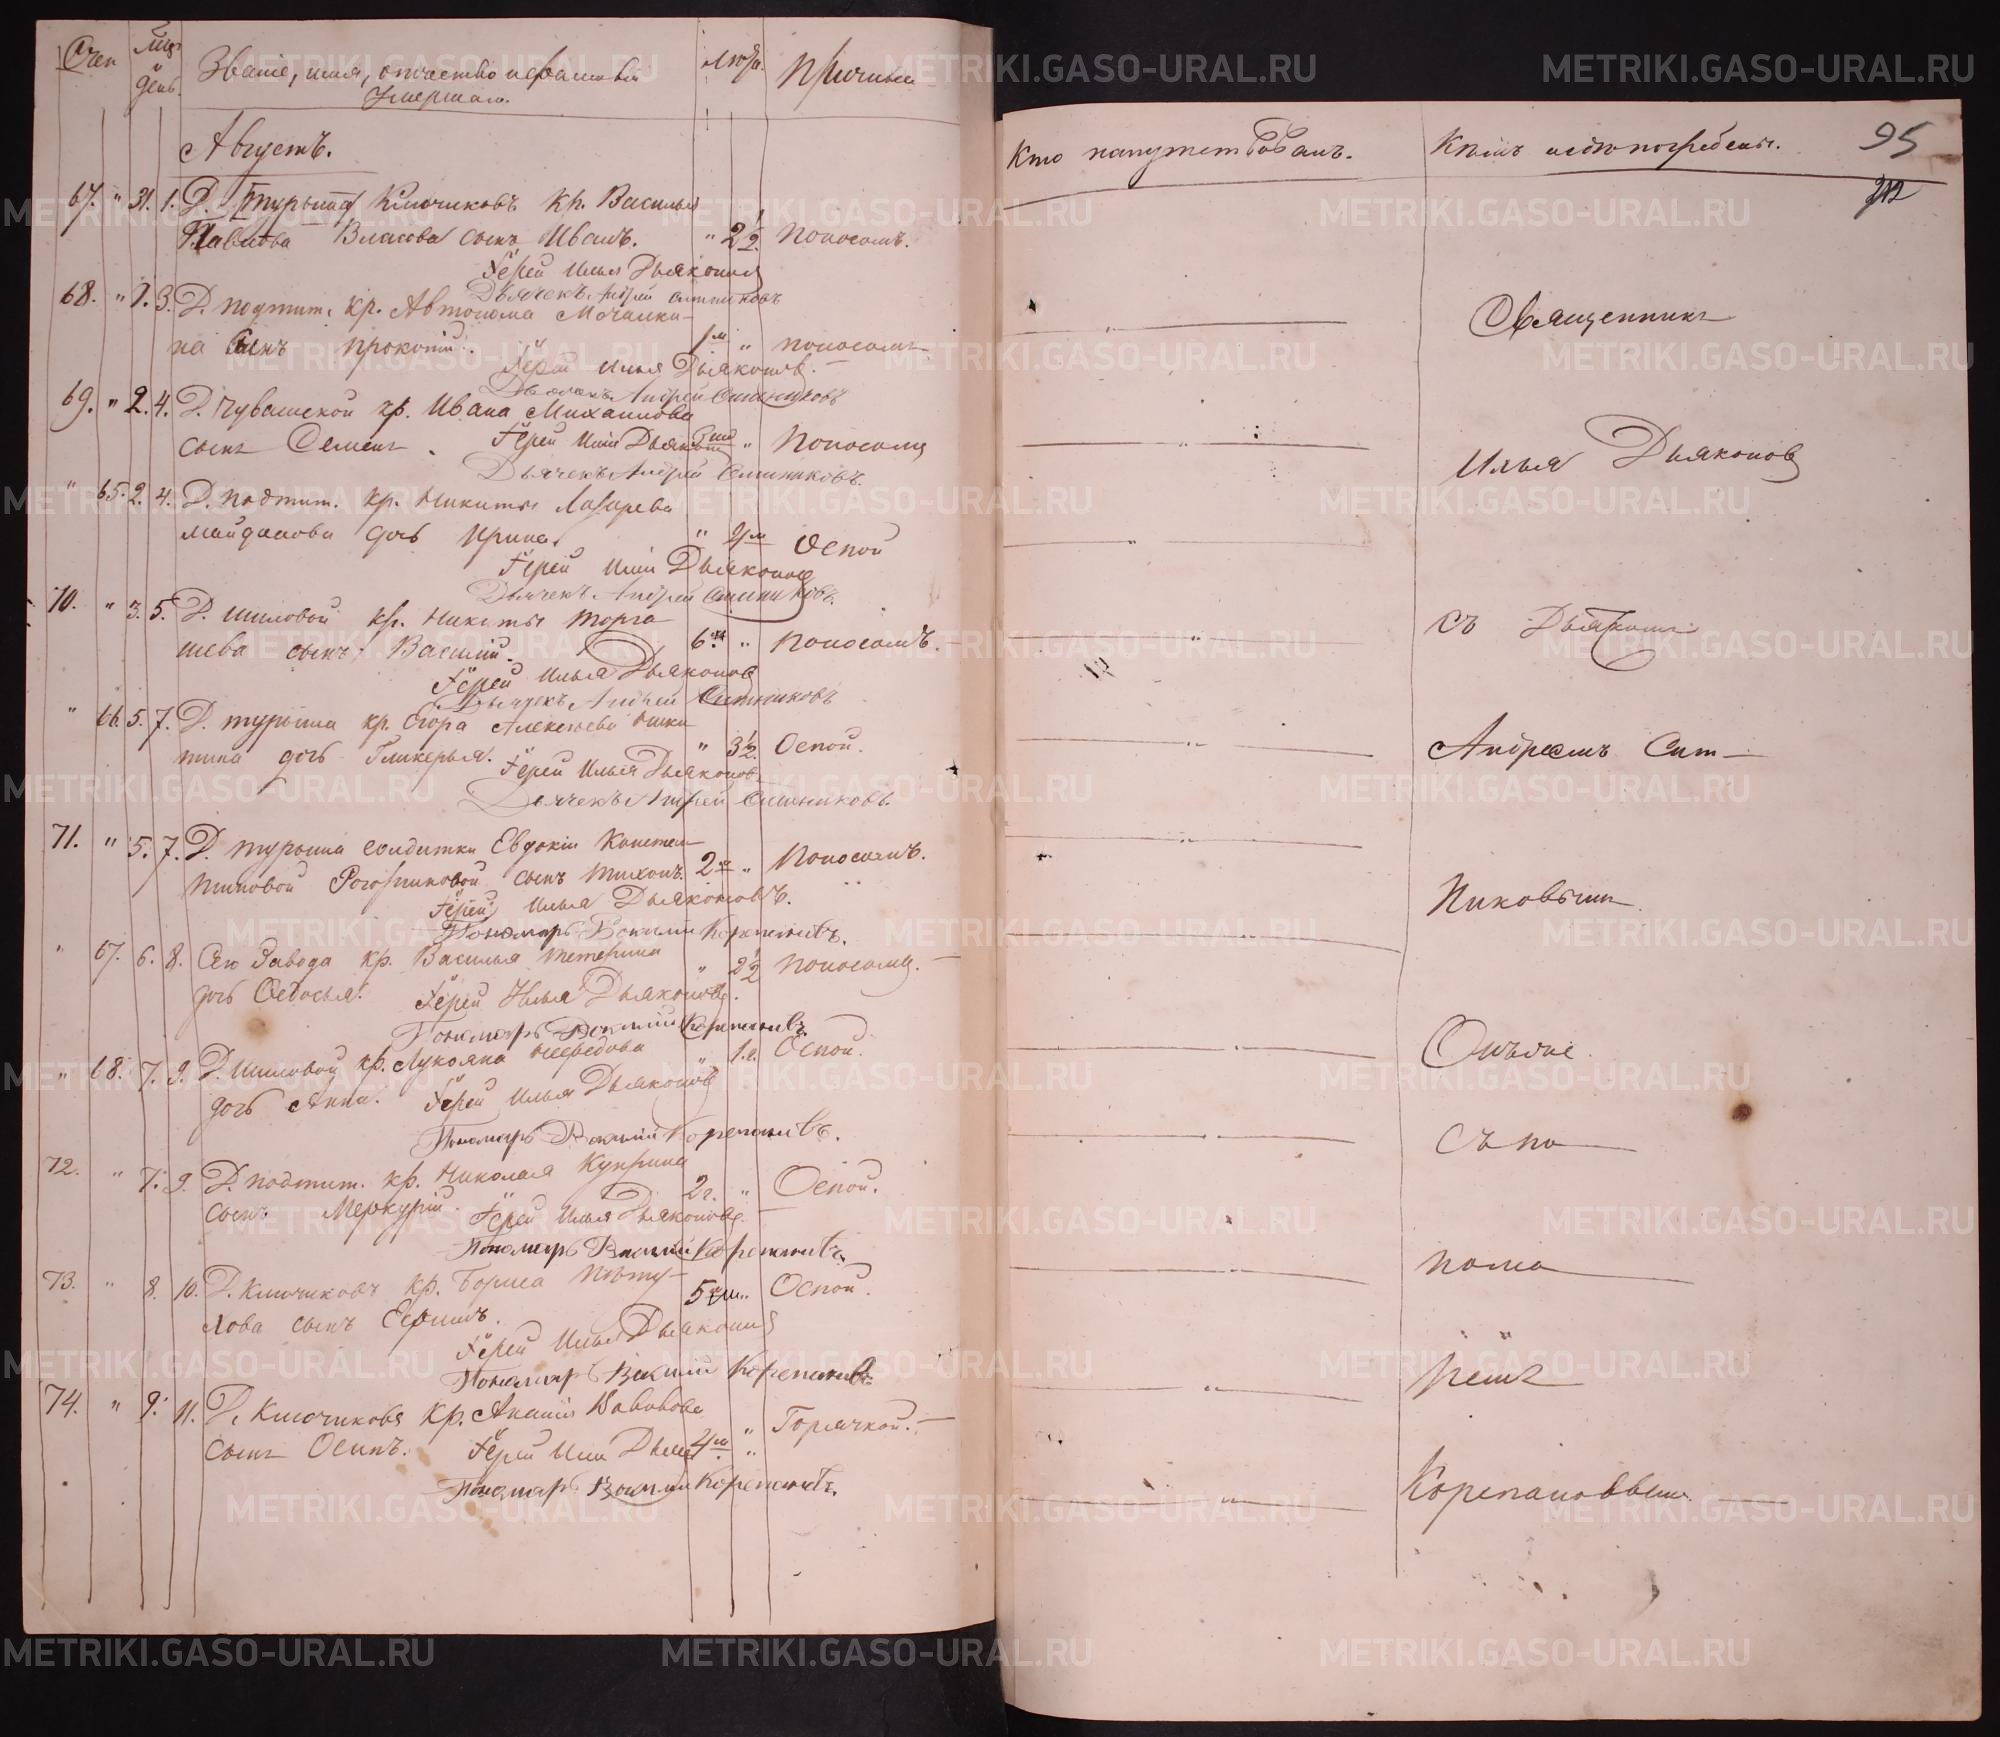 Счет
Мѣс. и день
Званіе, имя, отчество и фамилія
Умершаго.
Лѣта.
Причины
Августъ.
67. " 31. 1. Д. Турышъ Ключиковъ кр. Василья
Павлова Власова сынъ Иванъ. " 2 1/2 Поносомъ.
Іерей Илья Дьяконовъ
Дьячекъ Андрей Ситниковъ
68. " 1. 3. Д. подтит. кр. Автонома Мочалки-
на сынъ Прокопій. 1 м " поносомъ
Іерей Илья Дьяконовъ.
Дьячекъ Андрей Ситниковъ
69. " 2. 4. Д. Чувашской кр. Ивана Михаилова
сынъ Семенъ. " Поносомъ
Іерей Илія Дьяконовъ
Дьячекъ Андрей Ситниковъ.
" 65. 2. 4. Д. подтит. кр. Никиты Лазарева
Майданова дочь Ирина. " 4 м Оспой
Іерей Илія Дьяконовъ
Дьячекъ Андрей Ситниковъ.
70. " 3. 5. Д. Шиловой кр. Никиты Торга
шева сынъ Василій. 6 м " поносомъ.
Іерей Илья Дьяконовъ
Дьячекъ Андрей Ситниковъ
" 66. 5. 7. Д. Турыша кр. Егора Алексѣева Ники
тина дочь Гликерья. " 3 1/2 Оспой.
Іерей Илья Дьяконовъ.
Дьячекъ Андрей Ситниковъ.
71. " 5. 7. Д. Турыша солдатки Евдокіи Констан
тиновой Рогозниковой сынъ Тихонъ. 2 " Поносомъ.
Іерей Илья Дьяконовъ.
Пономарь Василій Корепановъ.
" 67. 6. 8. Сего Завода кр. Василья Тетерина
дочь Ѳедосья. " 2 1/2 поносомъ.
Іерей Илья Дьяконовъ.
Пономарь Василій Корепановъ.
" 68. 7. 9. Д. Шиловой кр. Лукояна Нефедова
дочь Анна. " 1. г. Оспой.
Іерей Илья Дьяконовъ
Пономарь Василій Корепановъ.
72. " 7. 9. Д. подтит. кр. Николая Куприна
сынъ Меркурій. 2 г. " Оспой.
Іерей Илья Дьяконовъ.
Пономарь Василій Корепановъ
73. " 8. 10. Д. Ключиковъ кр. Бориса Пѣту-
хова сынъ Ефимъ. 5 " Оспой.
Іерей Илья Дьяконовъ
Пономарь Василій Корепановъ
74. " 9. 11. Д. Ключикова кр. Ананія Вавилова
сынъ Осипъ. " Горячкой.
Іерей Илія
Пономарь Василій Корепановъ.
Кто напутствовалъ.
Кѣмъ и гдѣ погребены.
95
Священникъ
Илья Дьяконовъ
съ Дьячкомъ
Андреемъ Сит-
никовымъ
Онъ же
съ по
нома
ремъ
Корепановымъ
METRIKI.GASO-URAL.RU